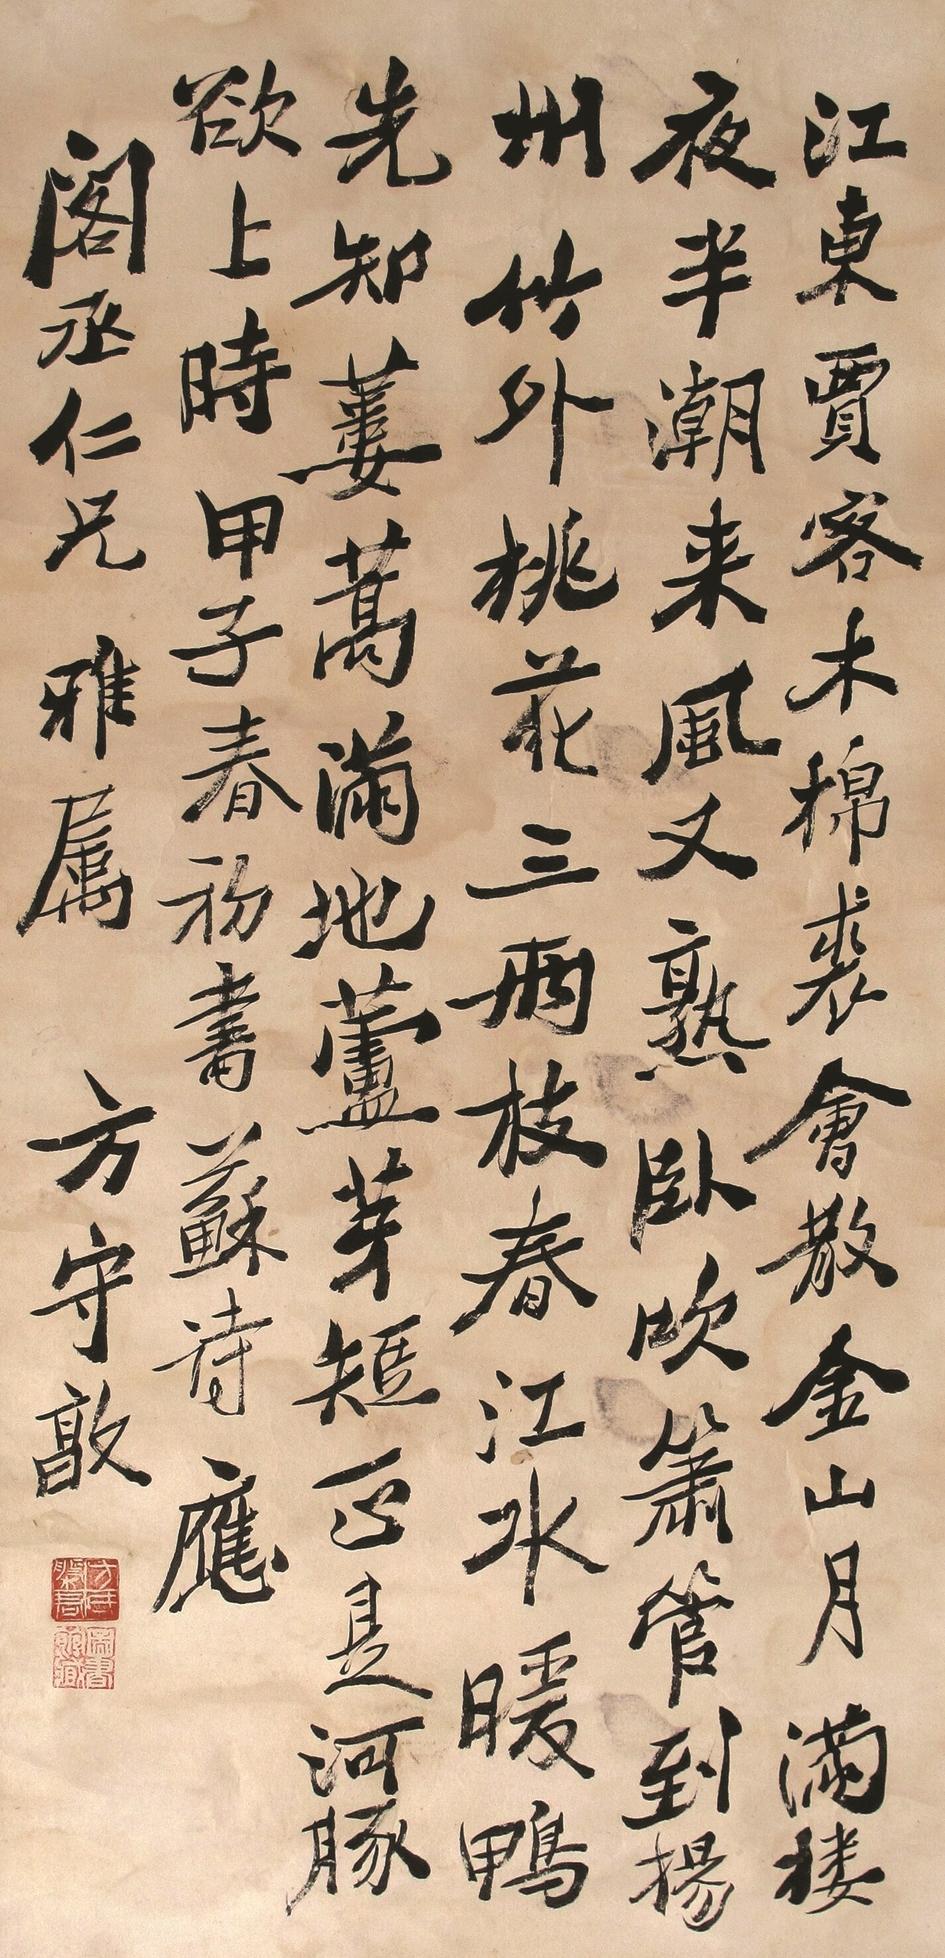 江東賈客木棉裘會散金山月滿樓
夜半潮来風又熟卧吹簫管到揚
州竹外桃花三兩枝春江水暖鴨
先知蔞蒿滿地蘆芽短正是河豚
欲上時甲子春初書蘇詩應
閣丞仁兄雅屬方守敦